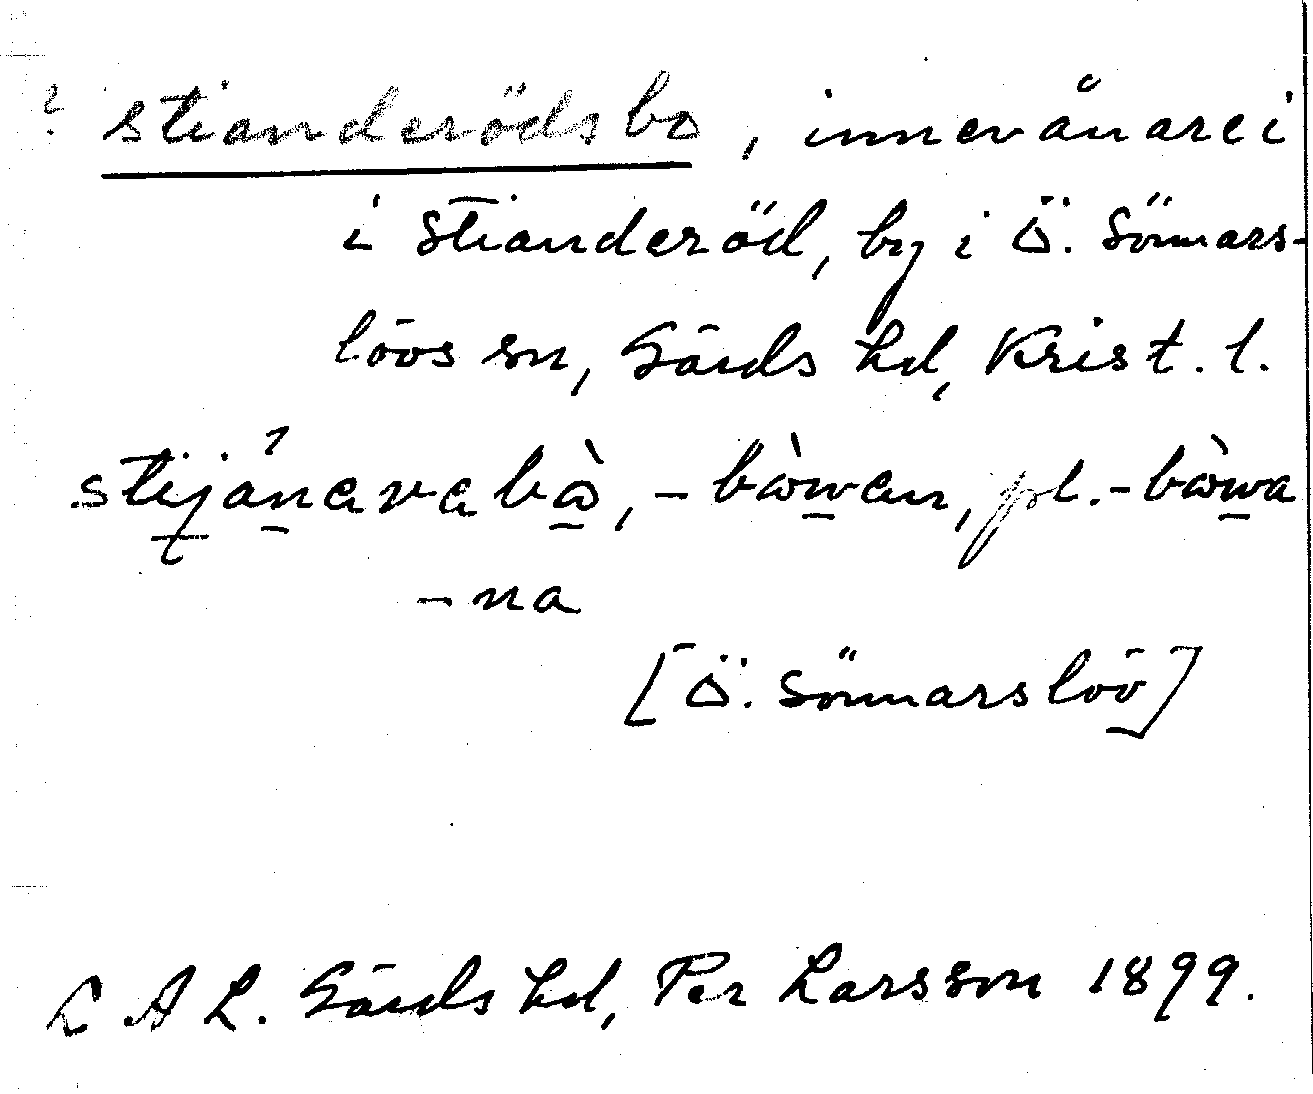 ? stianderödsbo, innevånare i
i Stianderöd, by i Ö. Sönnars-
lövs sn, Gärds hd, Krist. l.
stijánarabò, -bòwan, pl. -bòwa
-na
[Ö. Sönnarslöv]
L A L. Gärds hd, Per Larsson 1899.